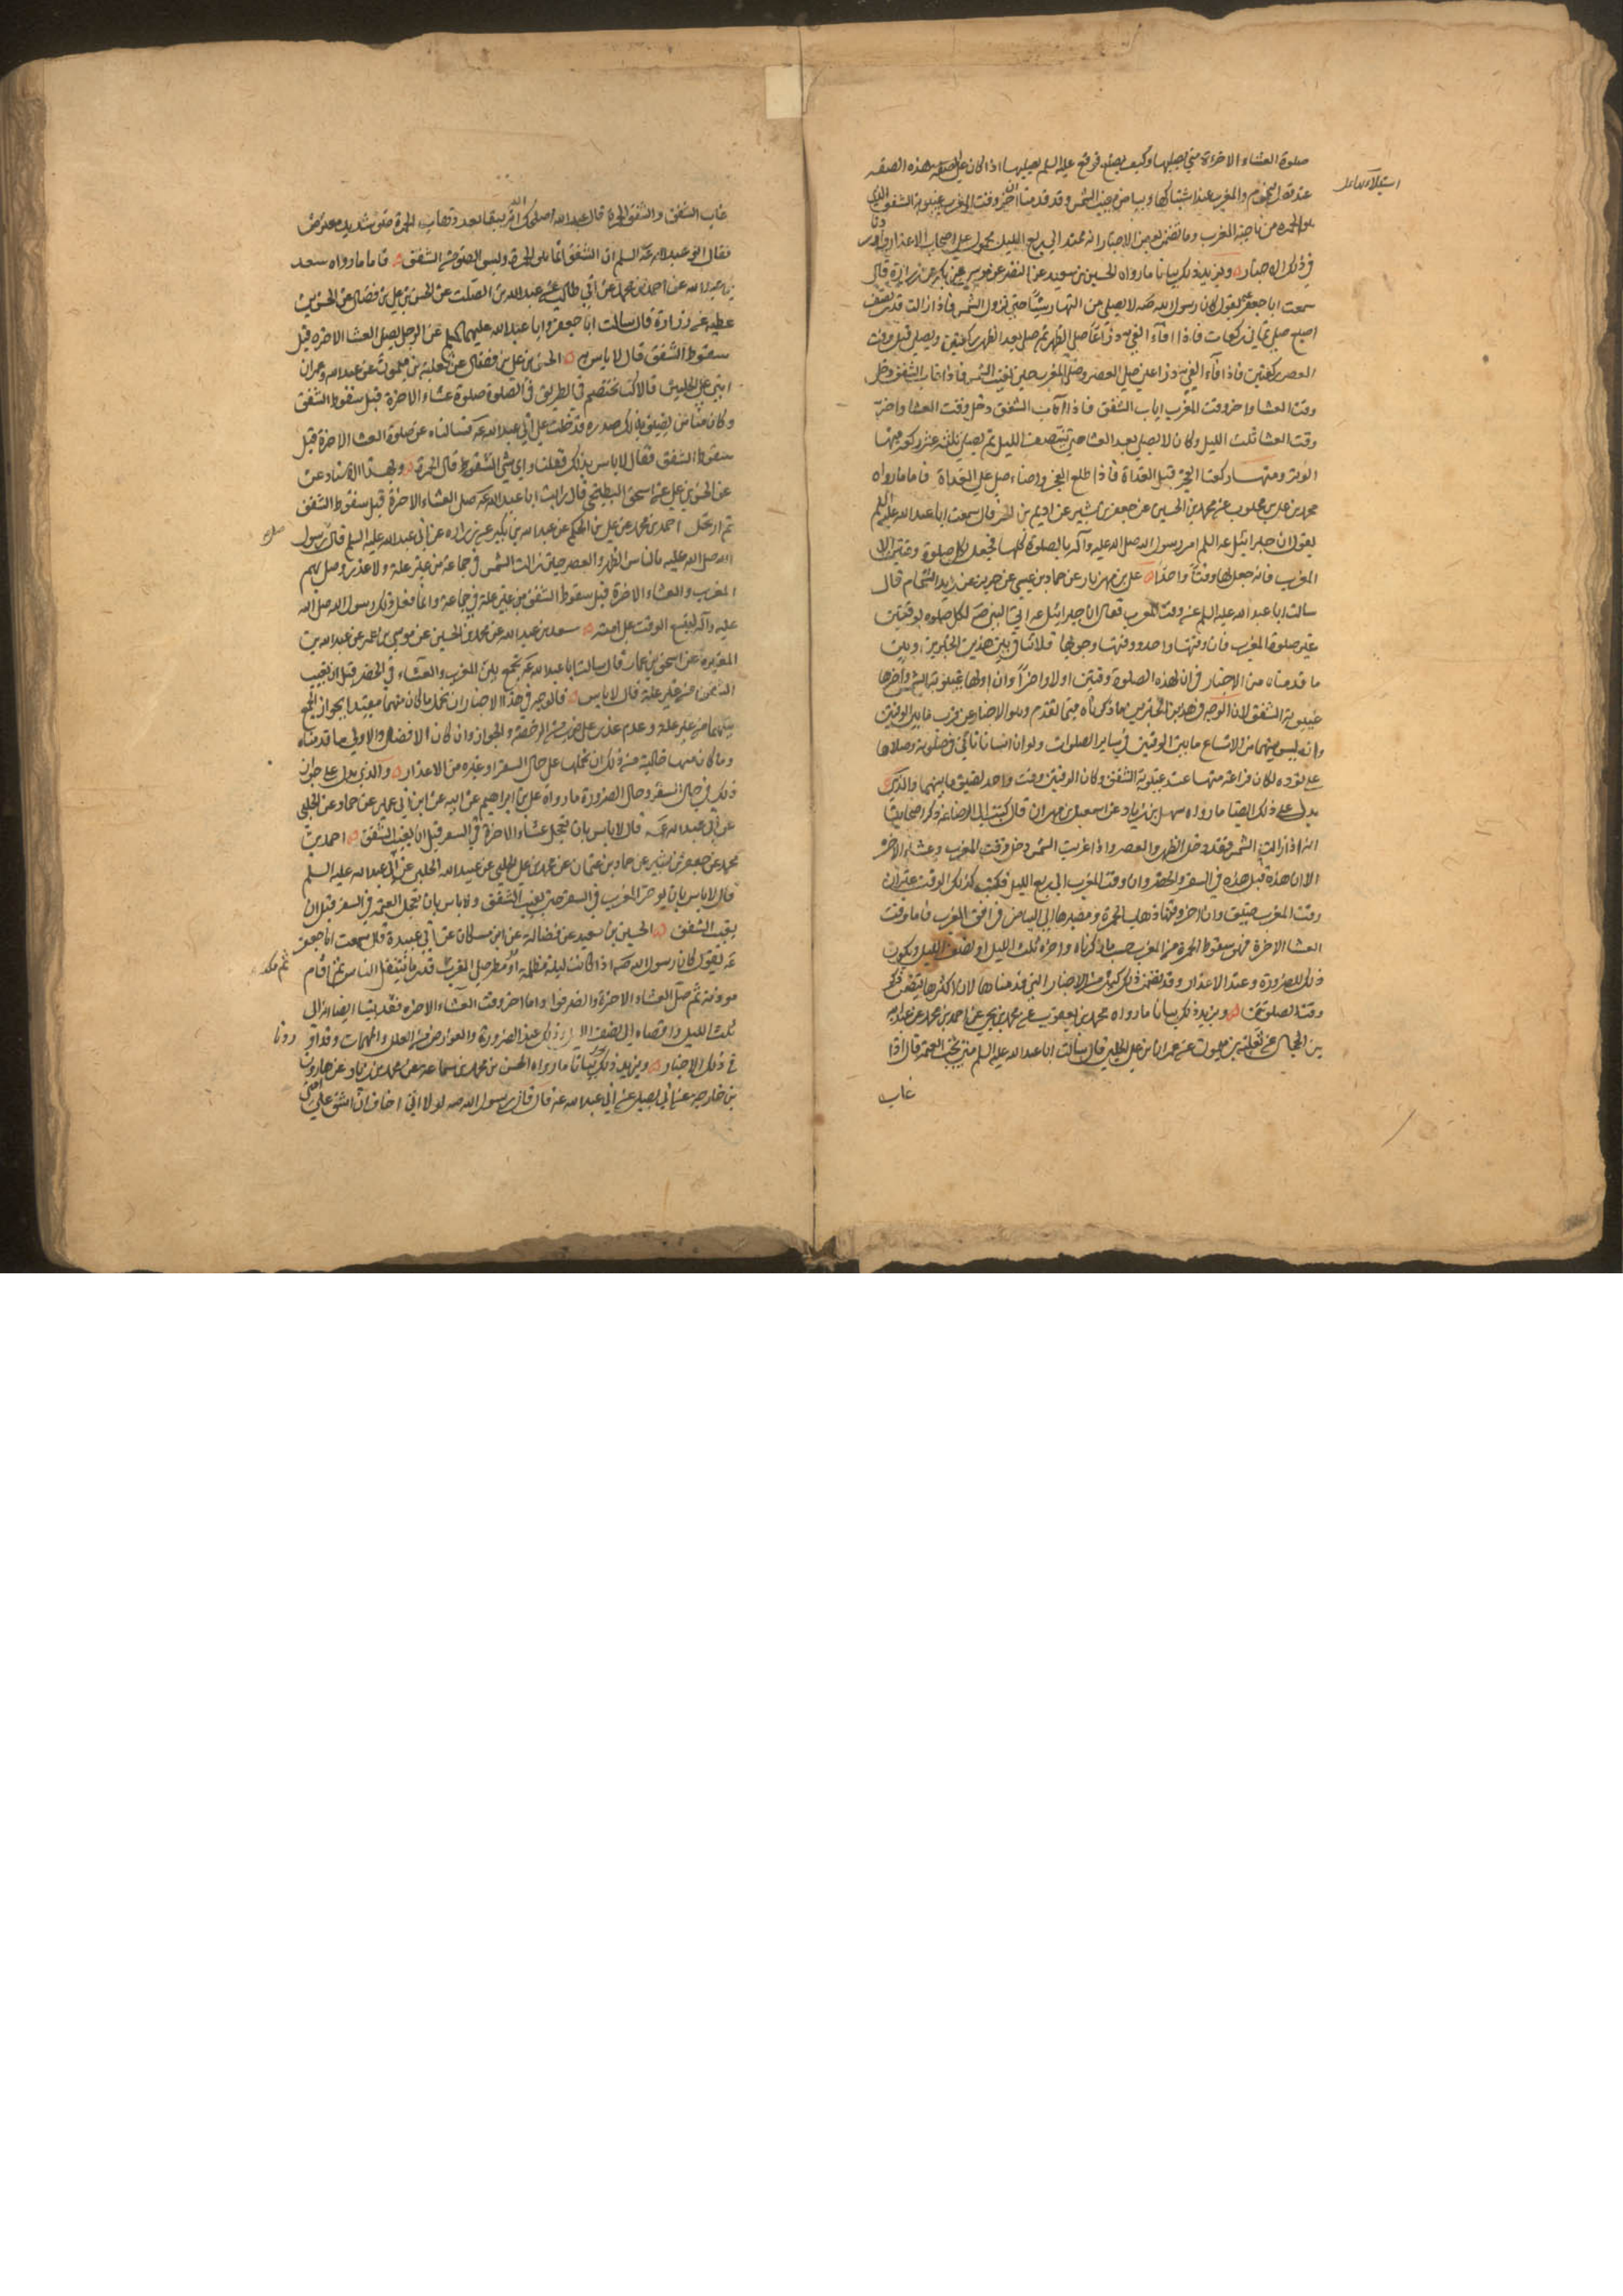 صلوة العشاء الاخرة متى يصليها وكيف يصنع فوقع عليه السلم يصليها اذا كان على هذه الصفة
عند قصر النجوم والمغرب عند اشتباكها وبياض مغيب الشمس وقد قدمنا ان اخر وقت المغرب غيبوبة الشفق
هو الحمرة من ناحية المغرب وما تضمن بعض الاخبار انه يمتد الى ربع الليل محمول على اصحاب الاعذار
في ذلك الاخبار ويزيد ذلك بيانا ما رواه الحسين بن سعيد عن النضر عن موسى بن بكر عن زرارة قال
سمعت ابا جعفر يقول كان رسول الله صه لا يصلي من النهار شيئا حتى تزول الشمس فاذا زالت قدر نصف
اصبع صلى ثماني ركعات فاذا فاء الفيء ذراعا صلى الظهر ثم صلى بعد الظهر ركعتين ويصلي قبل وقت
العصر ركعتين فاذا فاء الفيء ذراعين صلى العصر وصلى المغرب حين تغيب الشمس فاذا غاب الشفق دخل
وقت العشا واخر وقت المغرب اياب الشفق فاذا آب الشفق دخل وقت العشا واخر
وقت العشا ثلث الليل وكان لا يصلي بعد العشا حتى ينتصف الليل ثم يصلي ثلثة عشر ركعة منها
الوتر ومنها ركعتا الفجر قبل الغداة فاذا طلع الفجر واضاء صلى الغداة فاما ما رواه
محمد بن علي بن محبوب عن محمد بن الحسين عن جعفر بن بشير عن اديم بن الحر قال سمعت ابا عبد الله عليه السلم
يقول ان جبرائيل عه السلم امر رسول الله صلى الله عليه وآله بالصلوة كلها فجعل لكل صلوة وقتين الا
المغرب فانه جعل لها وقتا واحدا علي بن مهزيار عن حماد بن عيسى عن حريز عن زيد الشحام قال
سالت ابا عبد الله عليه السلم عن وقت المغرب فقال ان جبرائيل عه اتى النبي صه لكل صلوة بوقتين
غير صلوة المغرب فان وقتها واحد ووقتها وجوبها فلا تنافي بين هذين الخبرين وبين
ما قدمناه من الاخبار في ان لهذه الصلوة وقتين اولا واخرا وان اولها غيبوبة الشمس واخرها
غيبوبة الشفق لان الوجه في هذين الخبرين ما ذكرناه فيما تقدم وهو الاخبار عن قرب ما بين الوقتين
وانه ليس بينهما من الاتساع ما بين الوقتين في ساير الصلوات ولو ان انسانا تانى في صلوته وصلاها
على تؤده لكان فراغه منها عند غيبوبة الشفق وكان الوقتين وقت واحد لضيق ما بينهما والذي
يدل على ذلك ايضا ما رواه سهل بن زياد عن اسمعيل بن مهران قال كتبت الى الرضا عه ذكر اصحابنا
انه اذا زالت الشمس فقد دخل الظهر والعصر واذا غربت الشمس دخل وقت المغرب وعشاء الاخرة
الا ان هذه قبل هذه في السفر والحضر وان وقت المغرب الى ربع الليل فكتب كذلك الوقت غير ان
وقت المغرب ضيق وان اخر وقتها ذهاب الحمرة ومصيرها الى البياض في افق المغرب فاما وقت
العشا الاخرة فهو سقوط الحمرة من المغرب حسب ما ذكرناه واخره ثلث الليل او نصف الليل ويكون
ذلك للضرورة وعند الاعذار وقد تضمن ذلك كثير من الاخبار التي قدمناها لان اكثرها يتضمن ذكر
وقت الصلوتين ويزيد ذلك بيانا ما رواه محمد بن يعقوب عن محمد بن يحيى عن احمد بن محمد عن عبد الله
بن الحجال عن ثعلبة بن ميمون عن عمران بن علي الحلبي قال سالت ابا عبد الله عليه السلم متى تجب العتمة قال اذا
غاب
غاب الشفق والشفق الحمرة قال عبيد الله اصلحك الله انه يبقى بعد ذهاب الحمرة ضوء شديد معترض
فقال ابو عبد الله عه السلم ان الشفق انما هو الحمرة وليس الضوء من الشفق فاما ما رواه سعد
بن عبد الله عن احمد بن محمد عن ابي طالب عن عبد الله بن الصلت عن الحسن بن علي بن فضال عن الحسن بن
عطية عن زرارة قال سالت ابا جعفر وابا عبد الله عليهما السلم عن الرجل يصلي العشا الاخرة قبل
سقوط الشفق قال لا باس به الحسن بن علي بن فضال عن ثعلبة بن ميمون عن عبيد الله وعمران
ابني علي الحلبيين قالا كنا نختصم في الطريق في الصلوة صلوة عشاء الاخرة قبل سقوط الشفق
وكان منا من يضيق بذلك صدره فدخلت على ابي عبد الله عه فسالناه عن صلوة العشا الاخرة قبل
سقوط الشفق فقال لا باس بذلك فقلنا واي شي الشفق فقال الحمرة وبهذا الاسناد عن
عن الحسن بن علي عن اسحق البطيخي قال رايت ابا عبد الله عه صلى العشاء الاخرة قبل سقوط الشفق
ثم ارتحل احمد بن محمد عن علي بن الحكم عن عبد الله بن بكير عن زرارة عن ابي عبد الله عليه السلم قال رسول
الله صلى الله عليه بالناس الظهر والعصر حين زالت الشمس في جماعة من غير علة ولا عذر وصلى بهم
المغرب والعشاء الاخرة قبل سقوط الشفق من غير علة في جماعة وانما فعل ذلك رسول الله صلى الله
عليه وآله ليتسع الوقت على امته سعد بن عبد الله عن محمد بن الحسين عن موسى بن عمر عن عبد الله بن
المغيرة عن اسحق بن عمار قال سالت ابا عبد الله عه نجمع بين المغرب والعشاء في الحضر قبل ان يغيب
الشفق من غير علة قال لا باس فالوجه في هذا الاخبار ان نحمل ما كان منها مقيدا بجواز الجمع
بينهما من غير علة وعدم عذر على ضرب من الرخصة والجواز وان كان الافضل والاولى ما قدمناه
وما كان منها خالية من ذلك ان نحملها على حال السفر او غيره من الاعذار والذي يدل على جواز
ذلك في حال السفر وحال الضرورة ما رواه علي بن ابراهيم عن ابيه عن ابن ابي عمير عن حماد عن الحلبي
عن ابي عبد الله عه قال لا باس بان تعجل عشاء الاخرة في السفر قبل ان يغيب الشفق احمد بن
محمد عن جعفر بن بشير عن حماد بن عثمان عن محمد بن علي الحلبي عن عبيد الله الحلبي عن ابي عبد الله عليه السلم
قال لا باس بان يوخر المغرب في السفر حتى يغيب الشفق ولا باس بان تعجل العتمة في السفر قبل ان
يغيب الشفق الحسين بن سعيد عن فضالة عن ابن مسكان عن ابي عبيدة قال سمعت ابا جعفر
عه يقول كان رسول الله صه اذا كانت ليلة مظلمة او مطر صلى المغرب ثم مكث قدر ما يتنفل الناس ثم اقام
موذنه ثم صلى العشاء الاخرة وانصرفوا واما اخر وقت العشاء الاخرة فقد بينا ايضا انه الى
ثلث الليل واقصاه الى نصف الليل وذلك عند الضرورة والعوارض من العلل والمهمات وقد اوردنا
في ذلك الاخبار ويزيد ذلك بيانا ما رواه الحسن بن محمد بن سماعة عن محمد بن زياد عن هارون
بن خارجة عن ابي بصير عن ابي عبد الله عه قال قال رسول الله صه لولا اني اخاف ان اشق على امتي